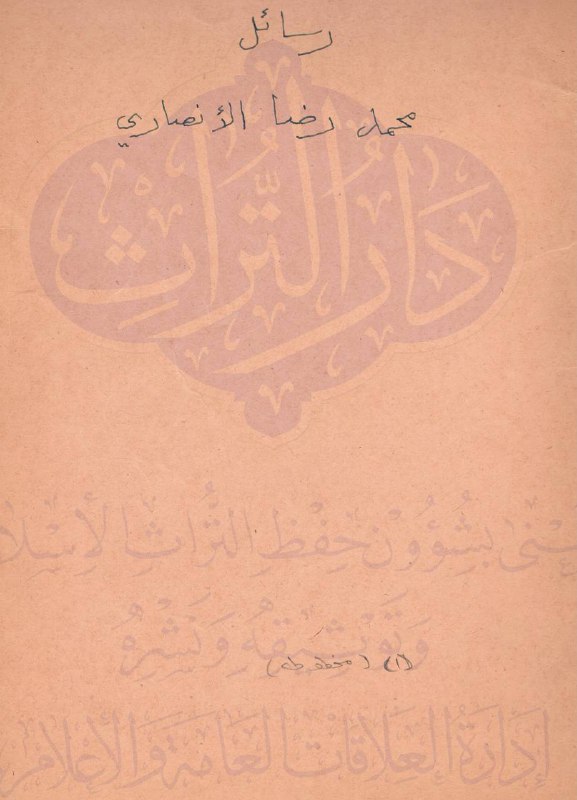 رسائل
محمد رضا الأنصاري
دَارُ التُّرَاثِ
بِشُؤُونِ حِفْظِ التُّرَاثِ الإِسْلا
وَتَوْثِيقِهِ وَنَشْرِهِ
(١) (مخطوطة)
إِدَارَةُ العِلَاقَاتِ العَامَةِ وَالإِعْلامِ